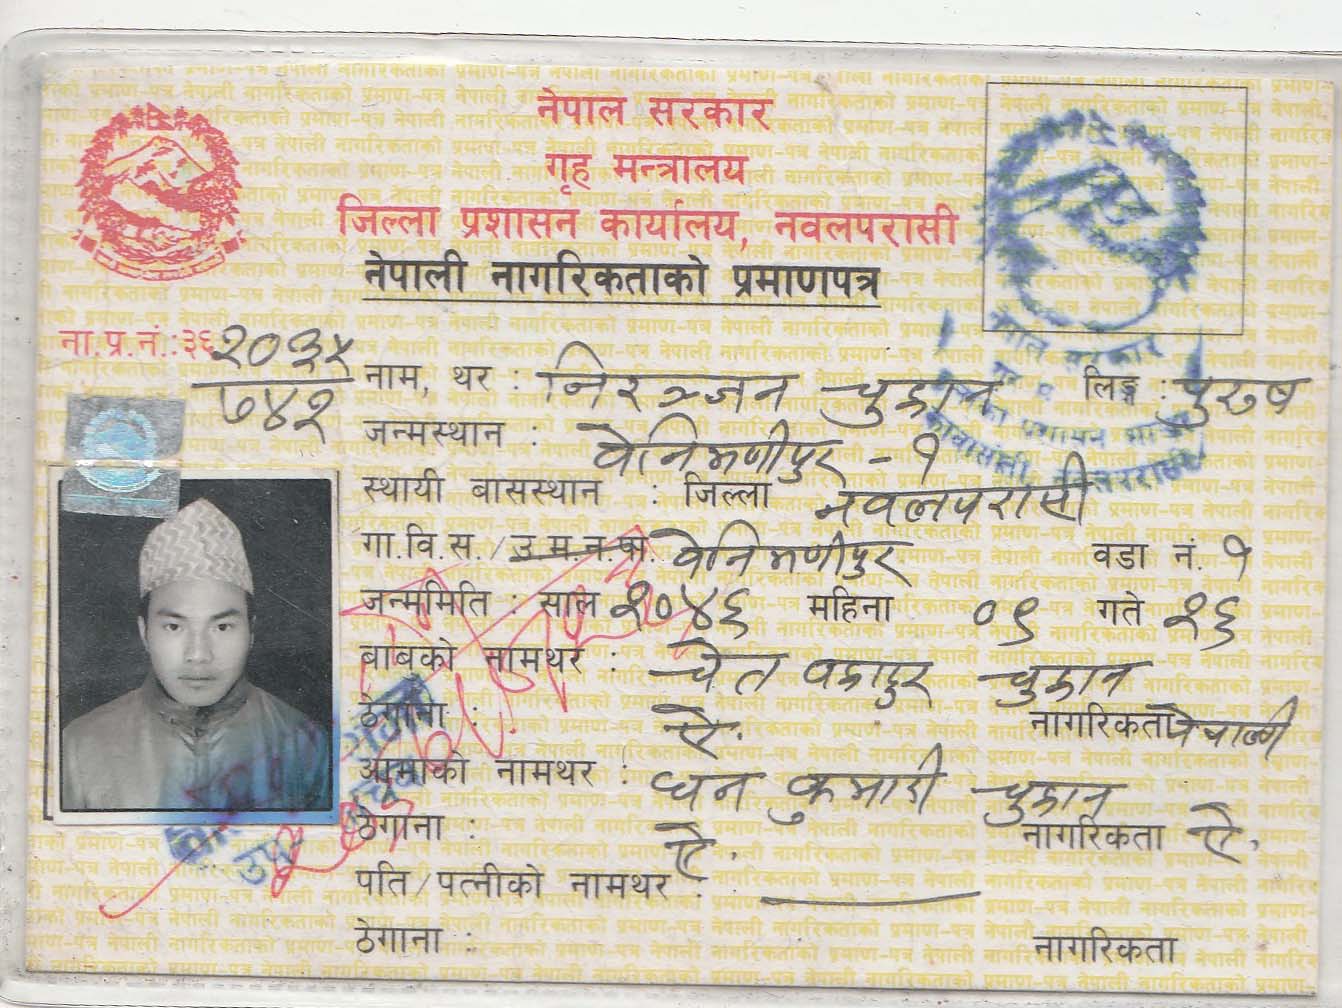 नेपाल सरकार
गृह मन्त्रालय
जिल्ला प्रशासन कार्यालय, नवलपरासी
नेपाली नागरिकताको प्रमाणपत्र
ना.प्र.नं.:३६
७४२
नाम, थर : निरञ्जन चुहान लिङ्ग : पुरुष
जन्मस्थान : वेनिमणीपुर - १
स्थायी बासस्थान : जिल्ला नवलपरासी
गा.वि.स./उ.म.न.पा. वेनिमणीपुर वडा नं. १
जन्ममिति : साल २०४६ महिना ०९ गते २६
बाबुको नामथर : चेत वहादुर चुहान
ठेगाना : ऐ. नागरिकता नेपाली
आमाको नामथर : धन कुमारी चुहान
ठेगाना : ऐ. नागरिकता ऐ.
पति/पत्नीको नामथर :
ठेगाना : नागरिकता